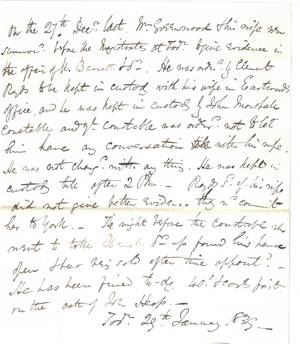 On the 27th Decr. last. Wm Greenwood & his wife were
summond. before the Magistrates at Todn. to give evidence in
the affair of Mr. Barrett &c. He was ordd. by Clement
Royds to be kept in custody with his wife in Eastwoods
office, and he was kept in custody by John
Constable, and the constable was ordd. not to let
him have any conversation with his wife.
He was not chargd. with any thing. He was kept in
custody till after 2 P.M. Royds Sd. if his wife
did not give better evidce. they wd. commit
her to York. The night before the Constable who
went to take up found his house
open & beer being sold after time appointd.
He has been fined to-day
on the oath of Joh Heap.
Todn. 29th January 1839